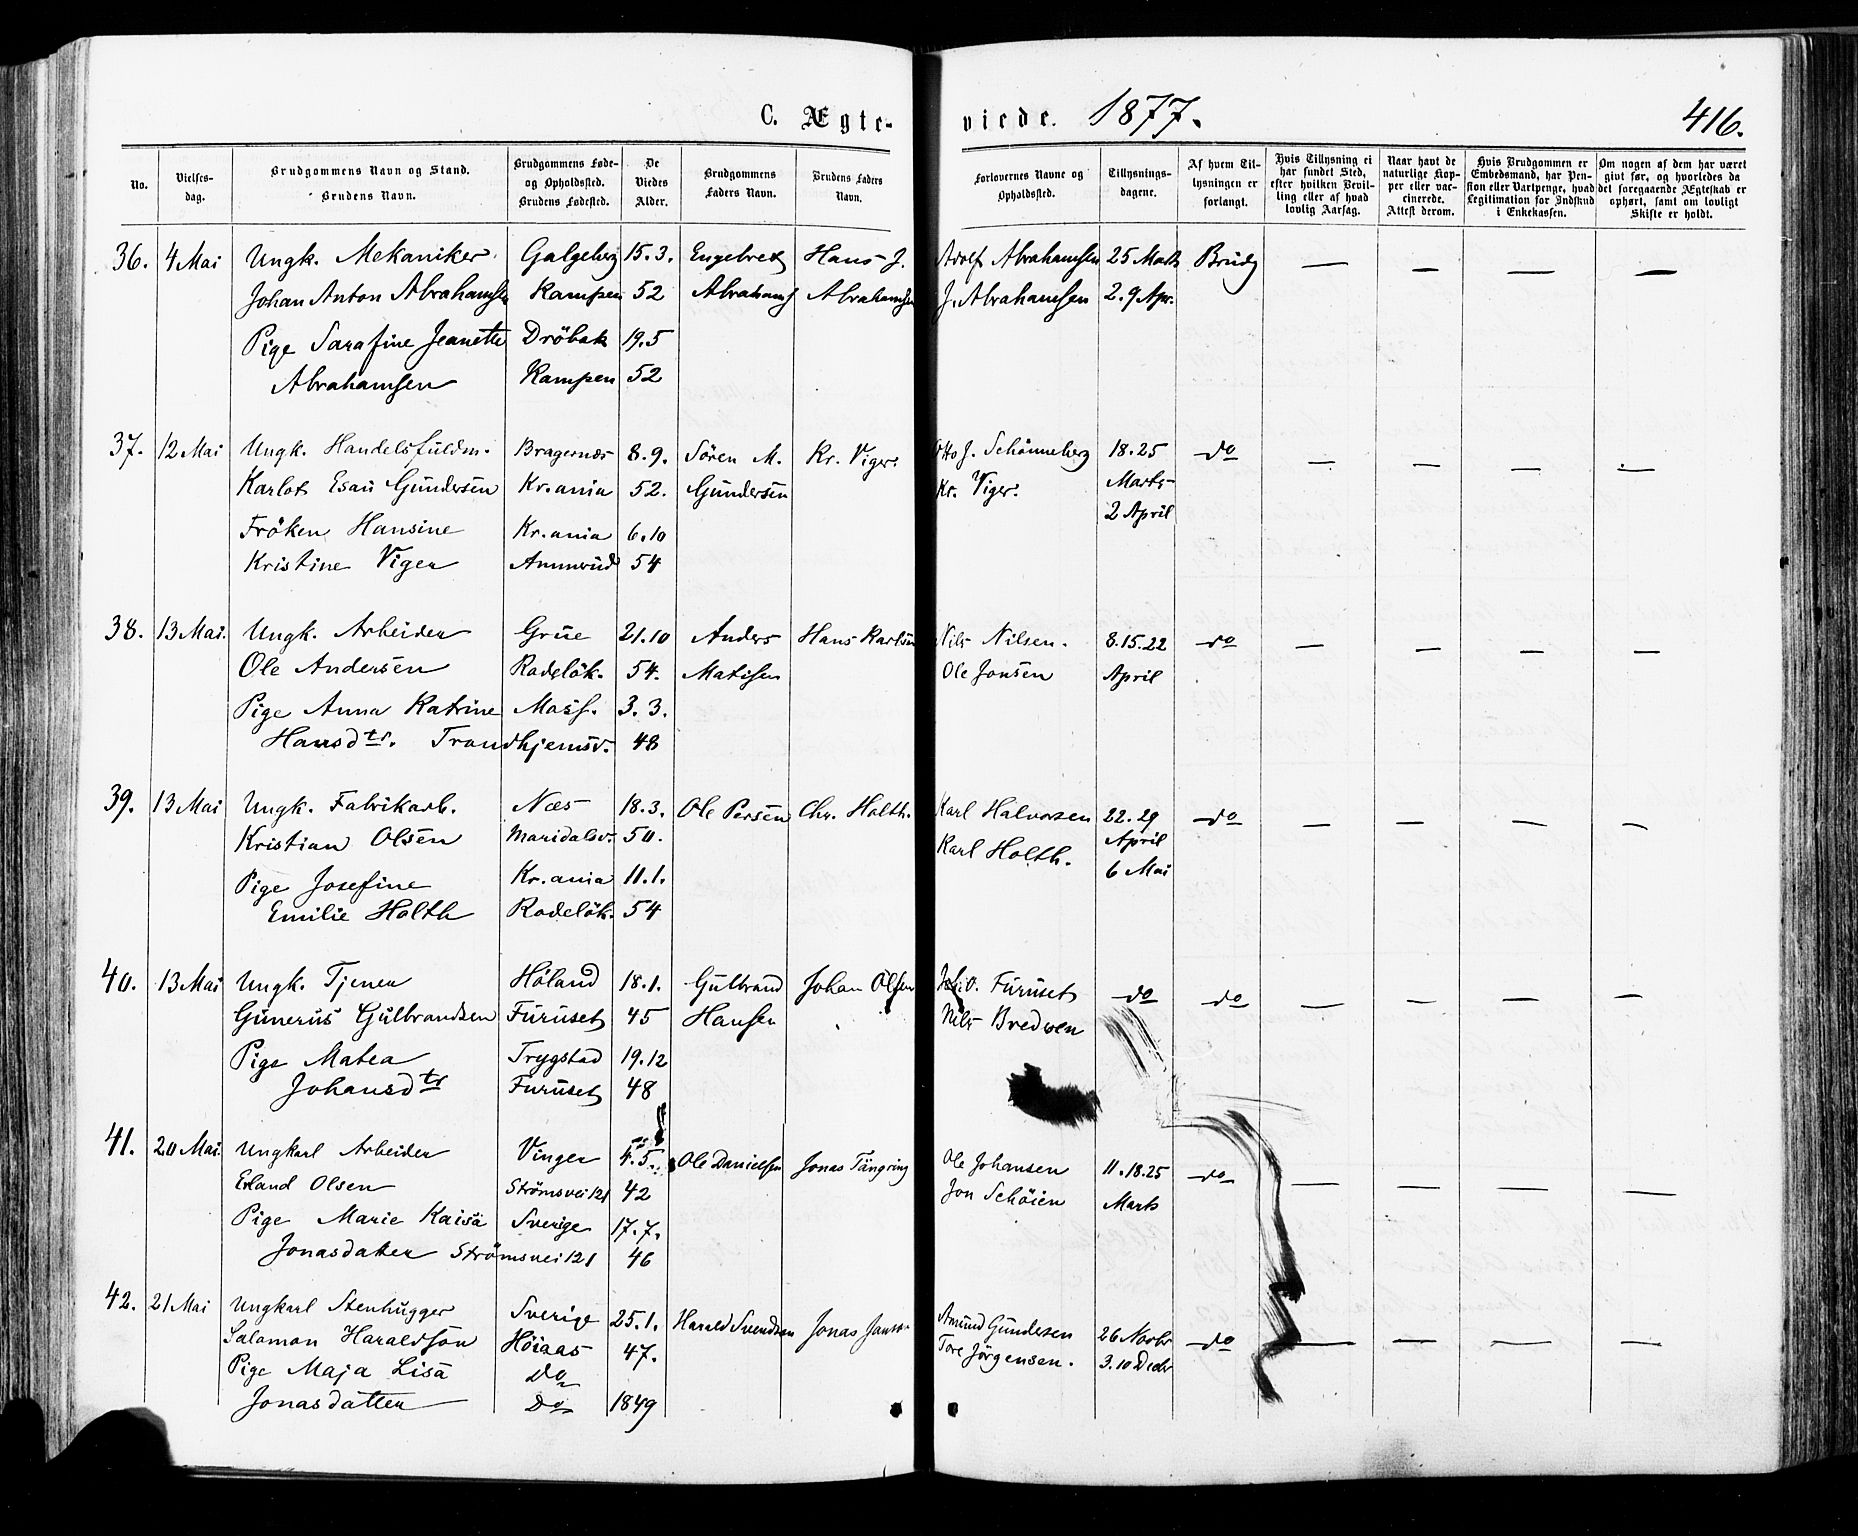 C. Ægte-
viede. 1877.
416.
No.
Vielses-
dag.
Brudgommens Navn og Stand.
Brudens Navn.
Brudgommens Føde-
og Opholdssted.
Brudens Fødested.
De
Viedes
Alder.
Brudgommens
Faders Navn.
Brudens Faders
Navn.
Forlovernes Navne og
Opholdssted.
Tillysnings-
dagene.
Af hvem Til-
lysningen er
forlangt.
Hvis Tillysning ei
har fundet Sted,
efter hvilken Bevil-
ling eller af hvad
lovlig Aarsag.
Naar havt de
naturlige Kop-
per eller vac-
cinerede.
Attest derom.
Hvis Brudgommen er
Embedsmand, har Pen-
sion eller Vartpenge, hvad
Legitimation for Indskud
i Enkekassen.
Om nogen af dem har været
givt før, og hvorledes da
det foregaaende Ægteskab er
ophørt, samt om lovligt
Skifte er holdt.
36. 4 Mai Ungk. Mekaniker Galgeberg 15.3. Engebret Hans J. Adolf Abrahamsen 25 Marts Brudg — — — —
Johan Anton Abrahamsen Kampen 52 Abrahams Abrahamsen J. Abrahamsen 2.9 Apr.
Pige Sarafine Jeanette Dröbak 19.5
Abrahamsen Kampen 52
37. 12 Mai Ungk. Handelsfuldm. Bragernæs 8.9. Sören M. Kr. Viger. Otto J. Schönneberg 18.25 do — — — —
Karlot Esau Gundersen Kr.ania 52. Gundersen Kr. Viger. Marts
2 April
Fröken Hansine Kr.ania 6.10
Kristine Viger Ammerud 54
38. 13 Mai. Ungk. Arbeider Grue 21.10 Anders Hans Karlsen Nils Nilsen. 8.15.22 do — — — —
Ole Andersen Rodelök. 54. Matisen Ole Jonsen April
Pige Anna Katrine Moss. 3.3.
Hansdtr. Trondhjemsv. 48
39. 13 Mai Ungk. Fabrikarb. Næs 18.3. Ole Persen Chr. Holth. Karl Halvorsen 22.29 do — — — —
Kristian Olsen Maridalsv. 50. Karl Holth. April
6 Mai
Pige Josefine Kr.ania 11.1.
Emilie Holth Rodelök. 54
40. 13 Mai Ungk. Tjener Höland 18.1. Gulbrand Johan Olsen Furuset do do — — — —
Gunerius Gulbrandsen Furuset 45 Hansen Nils Bredven
Pige Matea Trygstad 19.12
Johansdtr Furuset 48
41. 20 Mai. Ungkarl Arbeider Vinger 4.5. Ole Danielsen Jonas Tängring Ole Johansen 11.18.25 do — — — —
Erland Olsen Strömsvei 121 42 Jon Schöien Marts
Pige Marie Kaisa Sverige 17.7.
Jonasdatter Strömsvei 121 46
42. 21 Mai Ungkarl Stenhugger Sverige 25.1. Harald Svendsen Jonas Amund Gundersen 26 Novbr do — — — —
Salamon Haraldsön Höiaas 47. Tore Jörgensen. 3.10 Decbr
Pige Maja Lisa Do
Jonasdatter Do 1849